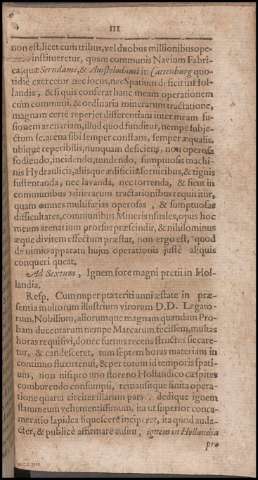 III
non est, licet cum tribus, vel duobus millionibus ope-
institueretur, quam communis Navium Fabri-
ca, quæ Serredami, & Amstelodami in Cattenburg quo-
tidie exercetur, nec locus, nec Spatium deficit in Hol-
landia, & si quis conferat hanc meam operationem
cum communi, & ordinaria minerarum tractatione,
magnam certè reperiet differentiam inter meam fu-
sionem arenariam, illud quod funditur, nempe subje-
ctum se, arena sibi semper constans, semper æqualis,
ubique reperibilis, nunquam deficiens, non operosè
fodiendo, incidendo, tundendo, sumptuosis machi-
nis Hydraulicis, aliisque ædificiis fornicibus, & tignis
sustentanda, nec lavanda, nec torrenda, & sicut in
communibus minerarum tractationibus requiritur,
quam omnes multifarias operosas, & sumptuosas
difficultates, communibus Mineris insitas, opus hoc
meum arenarium prorsus præscindit, & nihilominus
æquè divitem effectum præstat, non ergo est, quod
de nimio apparatu hujus operationis juste aliquis
conqueri queat.
Ad Sextum, Ignem fore magni pretii in Hol-
landia.
Resp. Cum nuper præteriti anni æstate in præ-
sentia multorum illustrium virorum D. D. Legato-
rum, Nobilium, aliorumque magnam quandam Pro-
bam ducentarum nempe Marcarum fecissem, multas
horas requisivi, donec furnus recens structus siccare-
tur, & candesceret, tum septem horas materiam in
continuo fluore tenui, & per totum id temporis spati-
um, non nisi pro uno floreno Hollandico cæspites
comburendo consumpsi, remansitque finita opera-
tione quarta circiter illarum pars, dedique ignem
flammeum vehementissimum, ita ut superior conca-
meratio lapidea liquescere inciperet, ita quod auda-
cter, & publicè affirmare ausim, ignem in Hollandia
pro